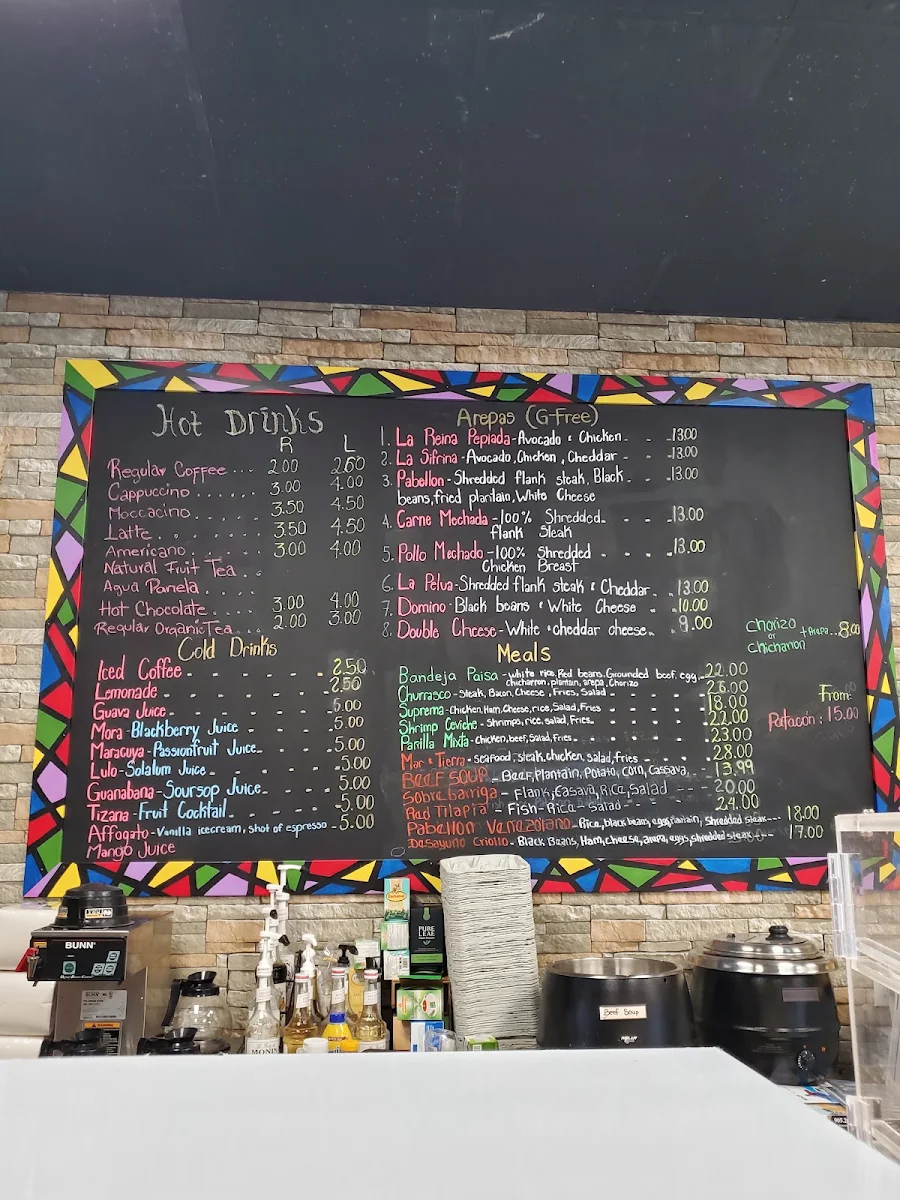 Hot Drinks
R L
Regular Coffee ... 2.00 2.60
Cappuccino ...... 3.00 4.00
Moccacino ..... 3.50 4.50
Latte ....... 3.50 4.50
Americano ...... 3.00 4.00
Natural Fruit Tea ..
Agua Panela ....
Hot Chocolate ..... 3.00 4.00
Regular Organic Tea .. 2.00 3.00
Cold Drinks
Iced Coffee - - - - - 2.50
Lemonade - - - - - 2.50
Guava Juice - - - - - 5.00
Mora - Blackberry Juice
Maracuya - Passionfruit Juice - - - 5.00
Lulo - Solalum Juice - - - - 5.00
Guanabana - Soursop Juice - - - 5.00
Tizana - Fruit Cocktail - - - - 5.00
Affogato - Vanilla icecream, shot of espresso - 5.00
Mango Juice
Arepas (G-Free)
1. La Reina Pepiada - Avocado & Chicken - - - 13.00
2. La Sifrina - Avocado, Chicken, Cheddar - - - 13.00
3. Pabellon - Shredded flank steak, Black - - - 13.00
beans, fried plantain, White Cheese
4. Carne Mechada - 100% Shredded - - - - 13.00
flank Steak
5. Pollo Mechado - 100% Shredded - - - - 13.00
Chicken Breast
6. La Pelua - Shredded flank steak & Cheddar - - 13.00
7. Domino - Black beans & White Cheese - - 10.00
8. Double Cheese - White & cheddar cheese - - 9.00
Chorizo
or
Chicharron + Arepa ... 8.00
Meals
Bandeja Paisa - white rice, Red beans, Grounded beef, egg - - 22.00
chicharron, plantain, arepa, Chorizo
Churrasco - Steak, Bacon, Cheese, Fries, Salad - - - 26.00
Suprema - Chicken, Ham, Cheese, rice, Salad, Fries - - - 18.00
Shrimp Ceviche - Shrimps, rice, salad, Fries - - - 22.00
Parilla Mixta - Chicken, beef, Salad, Fries - - - 23.00
Mar & Tierra - seafood, steak, chicken, salad, fries - - 28.00
BEEF SOUP - Beef, Plantain, Potato, Corn, Cassava, - - 13.99
Sobre barriga - Flank, Casava, Rice, Salad 20.00
Red Tilapia - Fish - Rice - Salad - - - - 24.00
Pabellon Venezolano - Rice, black beans, eggs, plantain, Shredded steak - - - 18.00
Desayuno Criollo - Black Beans, Ham, cheese, arepa, eggs, shredded steak - - - 17.00
From:
Patacón : 15.00
BUNN
BUNN
MONIN
PURE
LEAF
Beef Soup